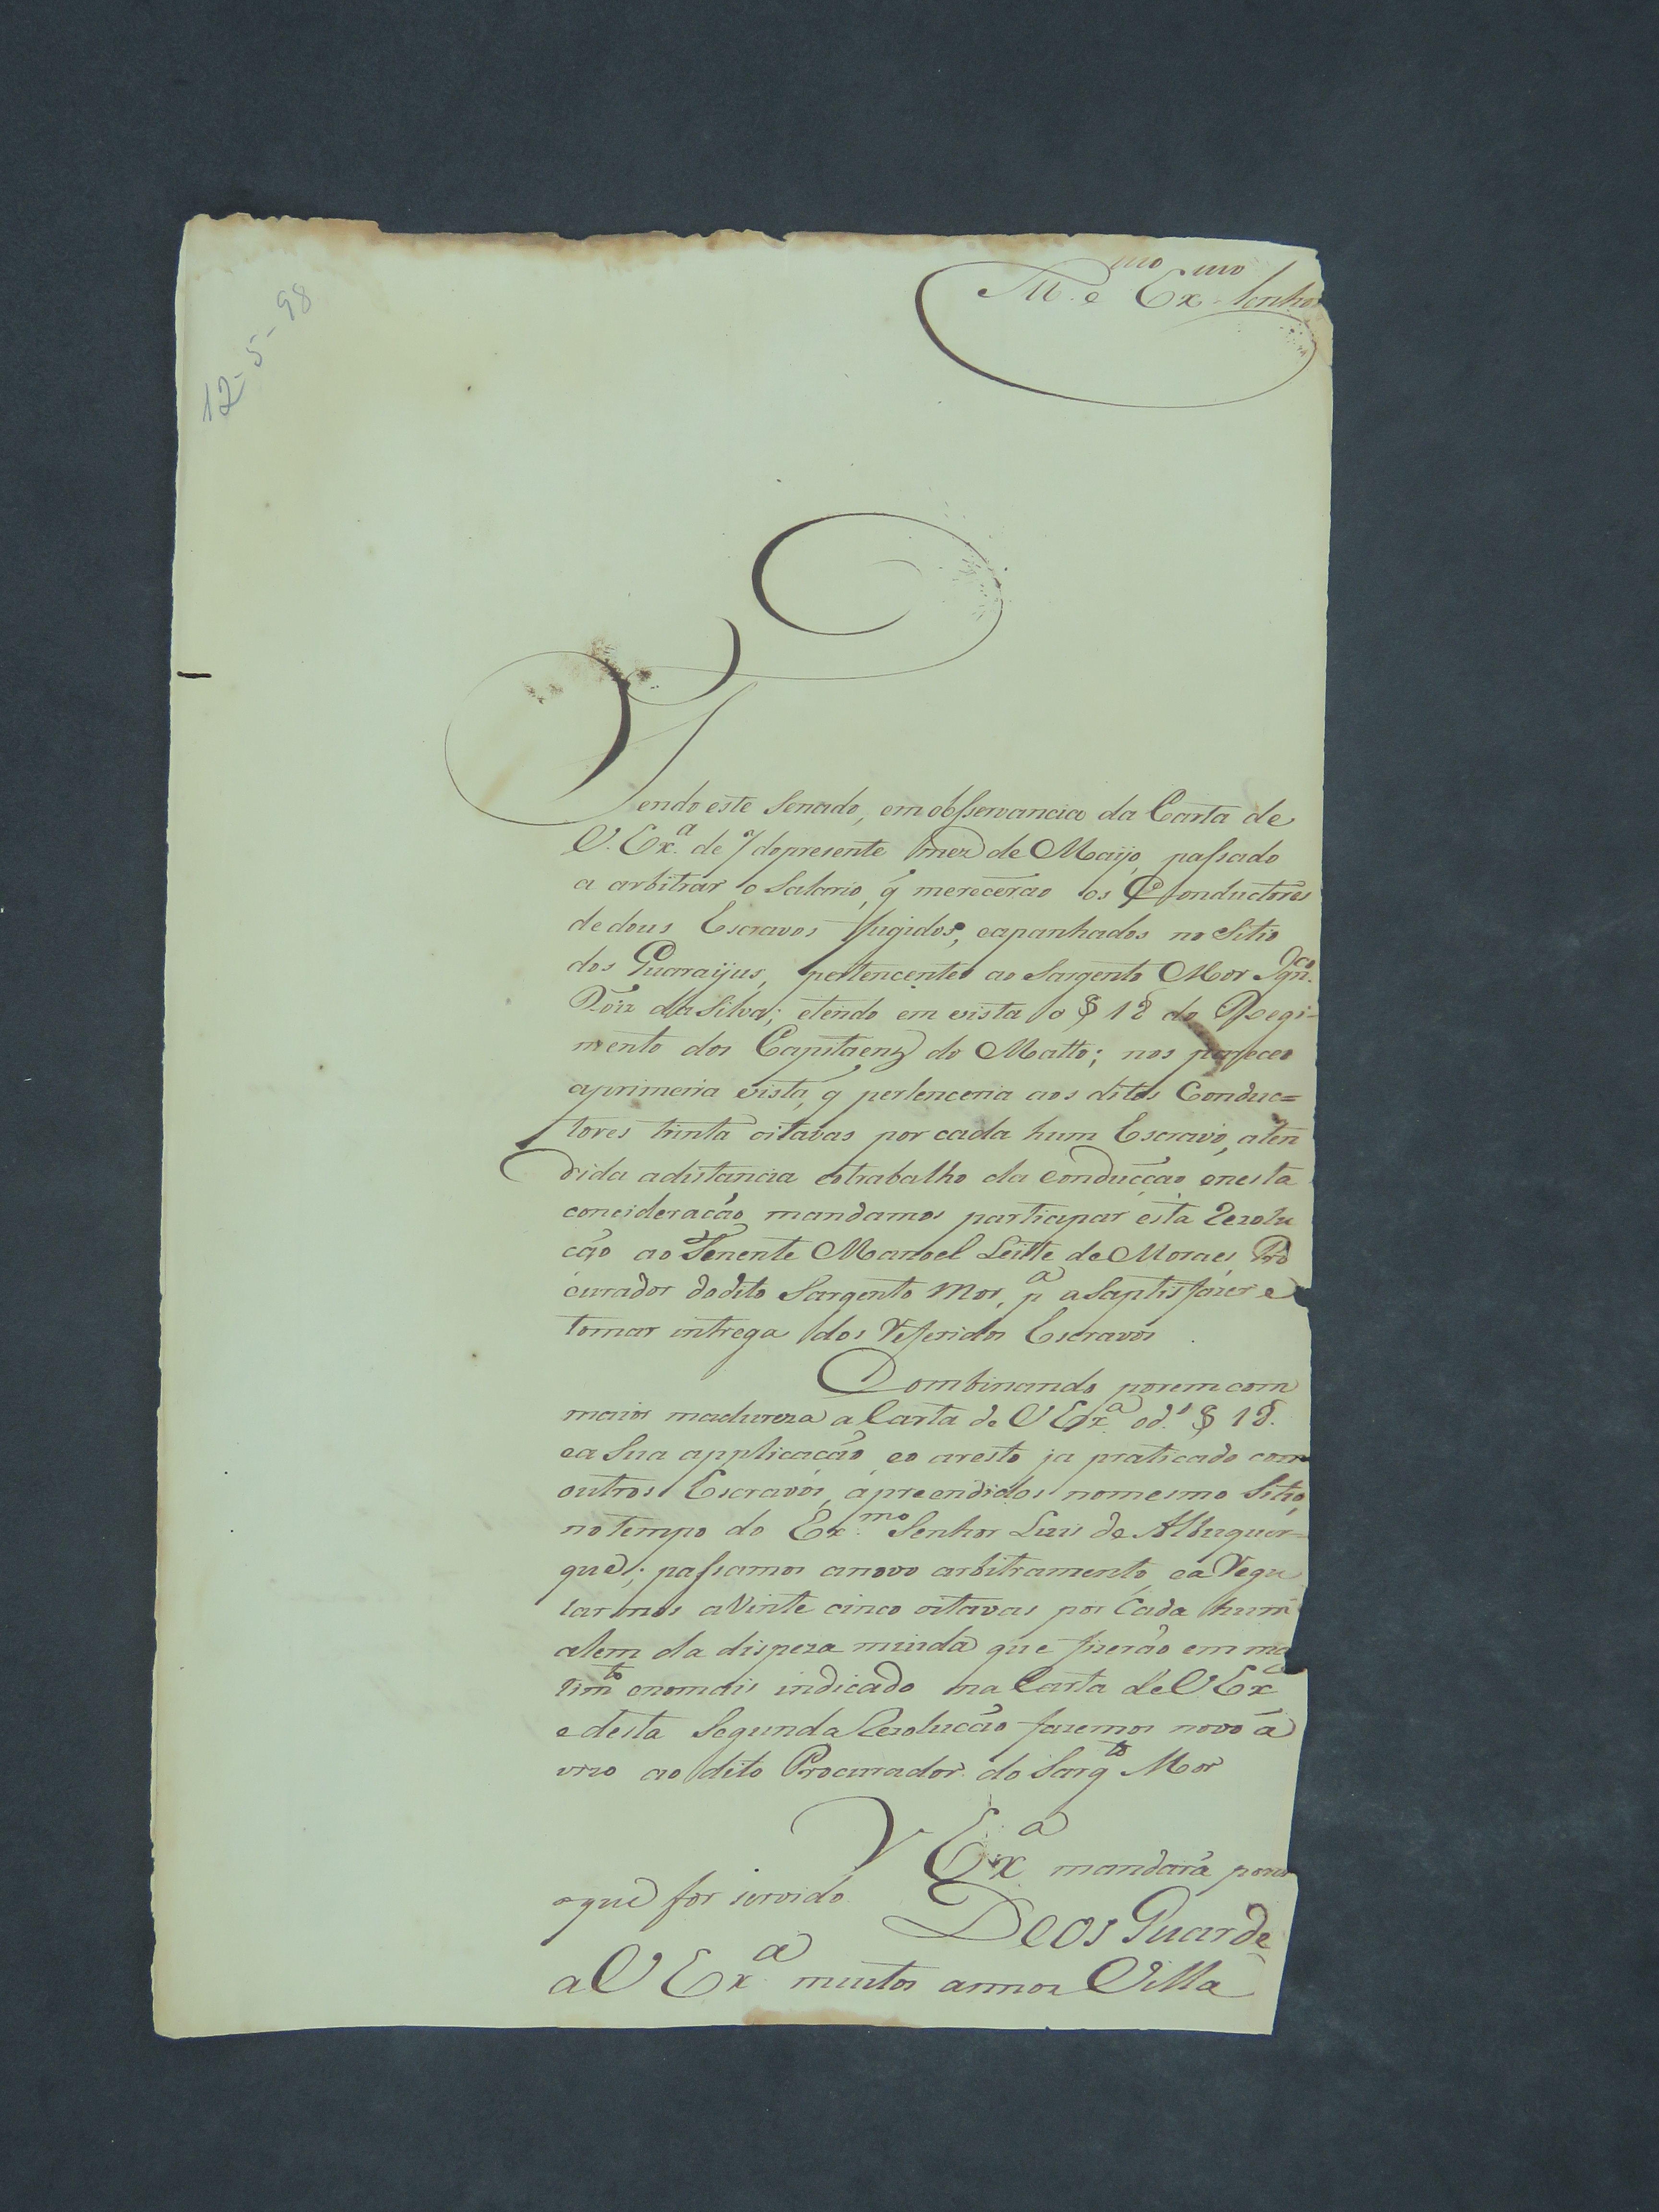 Ill.mo e Ex.mo Senhor
12-5-98
Tendo este Senado, em obsservancia da Carta de
V. Ex.a de 7 do presente mez de Maijo, passado
a arbitrar o Salario, q̃ merecerão os Conductores
de dous Escravos fugidos, e apanhados no Sitio
dos Guaraijus, pertencentes ao Sargento Mor Ign.co
Roiz da Silva; e tendo em vista o § 18 do Regi-
mento dos Capitaenz do Matto; nos pareceo
a primeria vista, q̃ pertenceria aos ditos Conduc=
tores trinta oitavas por cada hum Escravo, aten
dida a distancia e o trabalho da conducção e nesta
concideracão mandamos participar esta Rezolu
cão ao Tenente Manoel Leitte de Moraes, Pro
curador do dito Sargento Mor, p.a a saptisfazer e
tomar intrega dos Referidos Escravos
Combinando porem com
maior madureza a Carta de V Ex.a e o d.o § 18.
e a Sua applicacão, e o aresto ja praticado com
outros Escravos, apreendidos no mesmo Sitio,
no tempo do Ex.mo Senhor Luis de Albuquer=
que; passamos a novo arbitramento, e a Regu
larmos a Vinte cinco oitavas por Cada hum
alem da dispeza miuda que fizerão em ma
tim.to e no mais indicado na Carta de V Ex.a
e desta Segunda Rezolucão fazemos novo á
vizo ao dito Procurador do Sarg.to Mor
V Ex.a mandará porem
o que for servido Deos Guarde
a V Ex.a muitos annos Villa